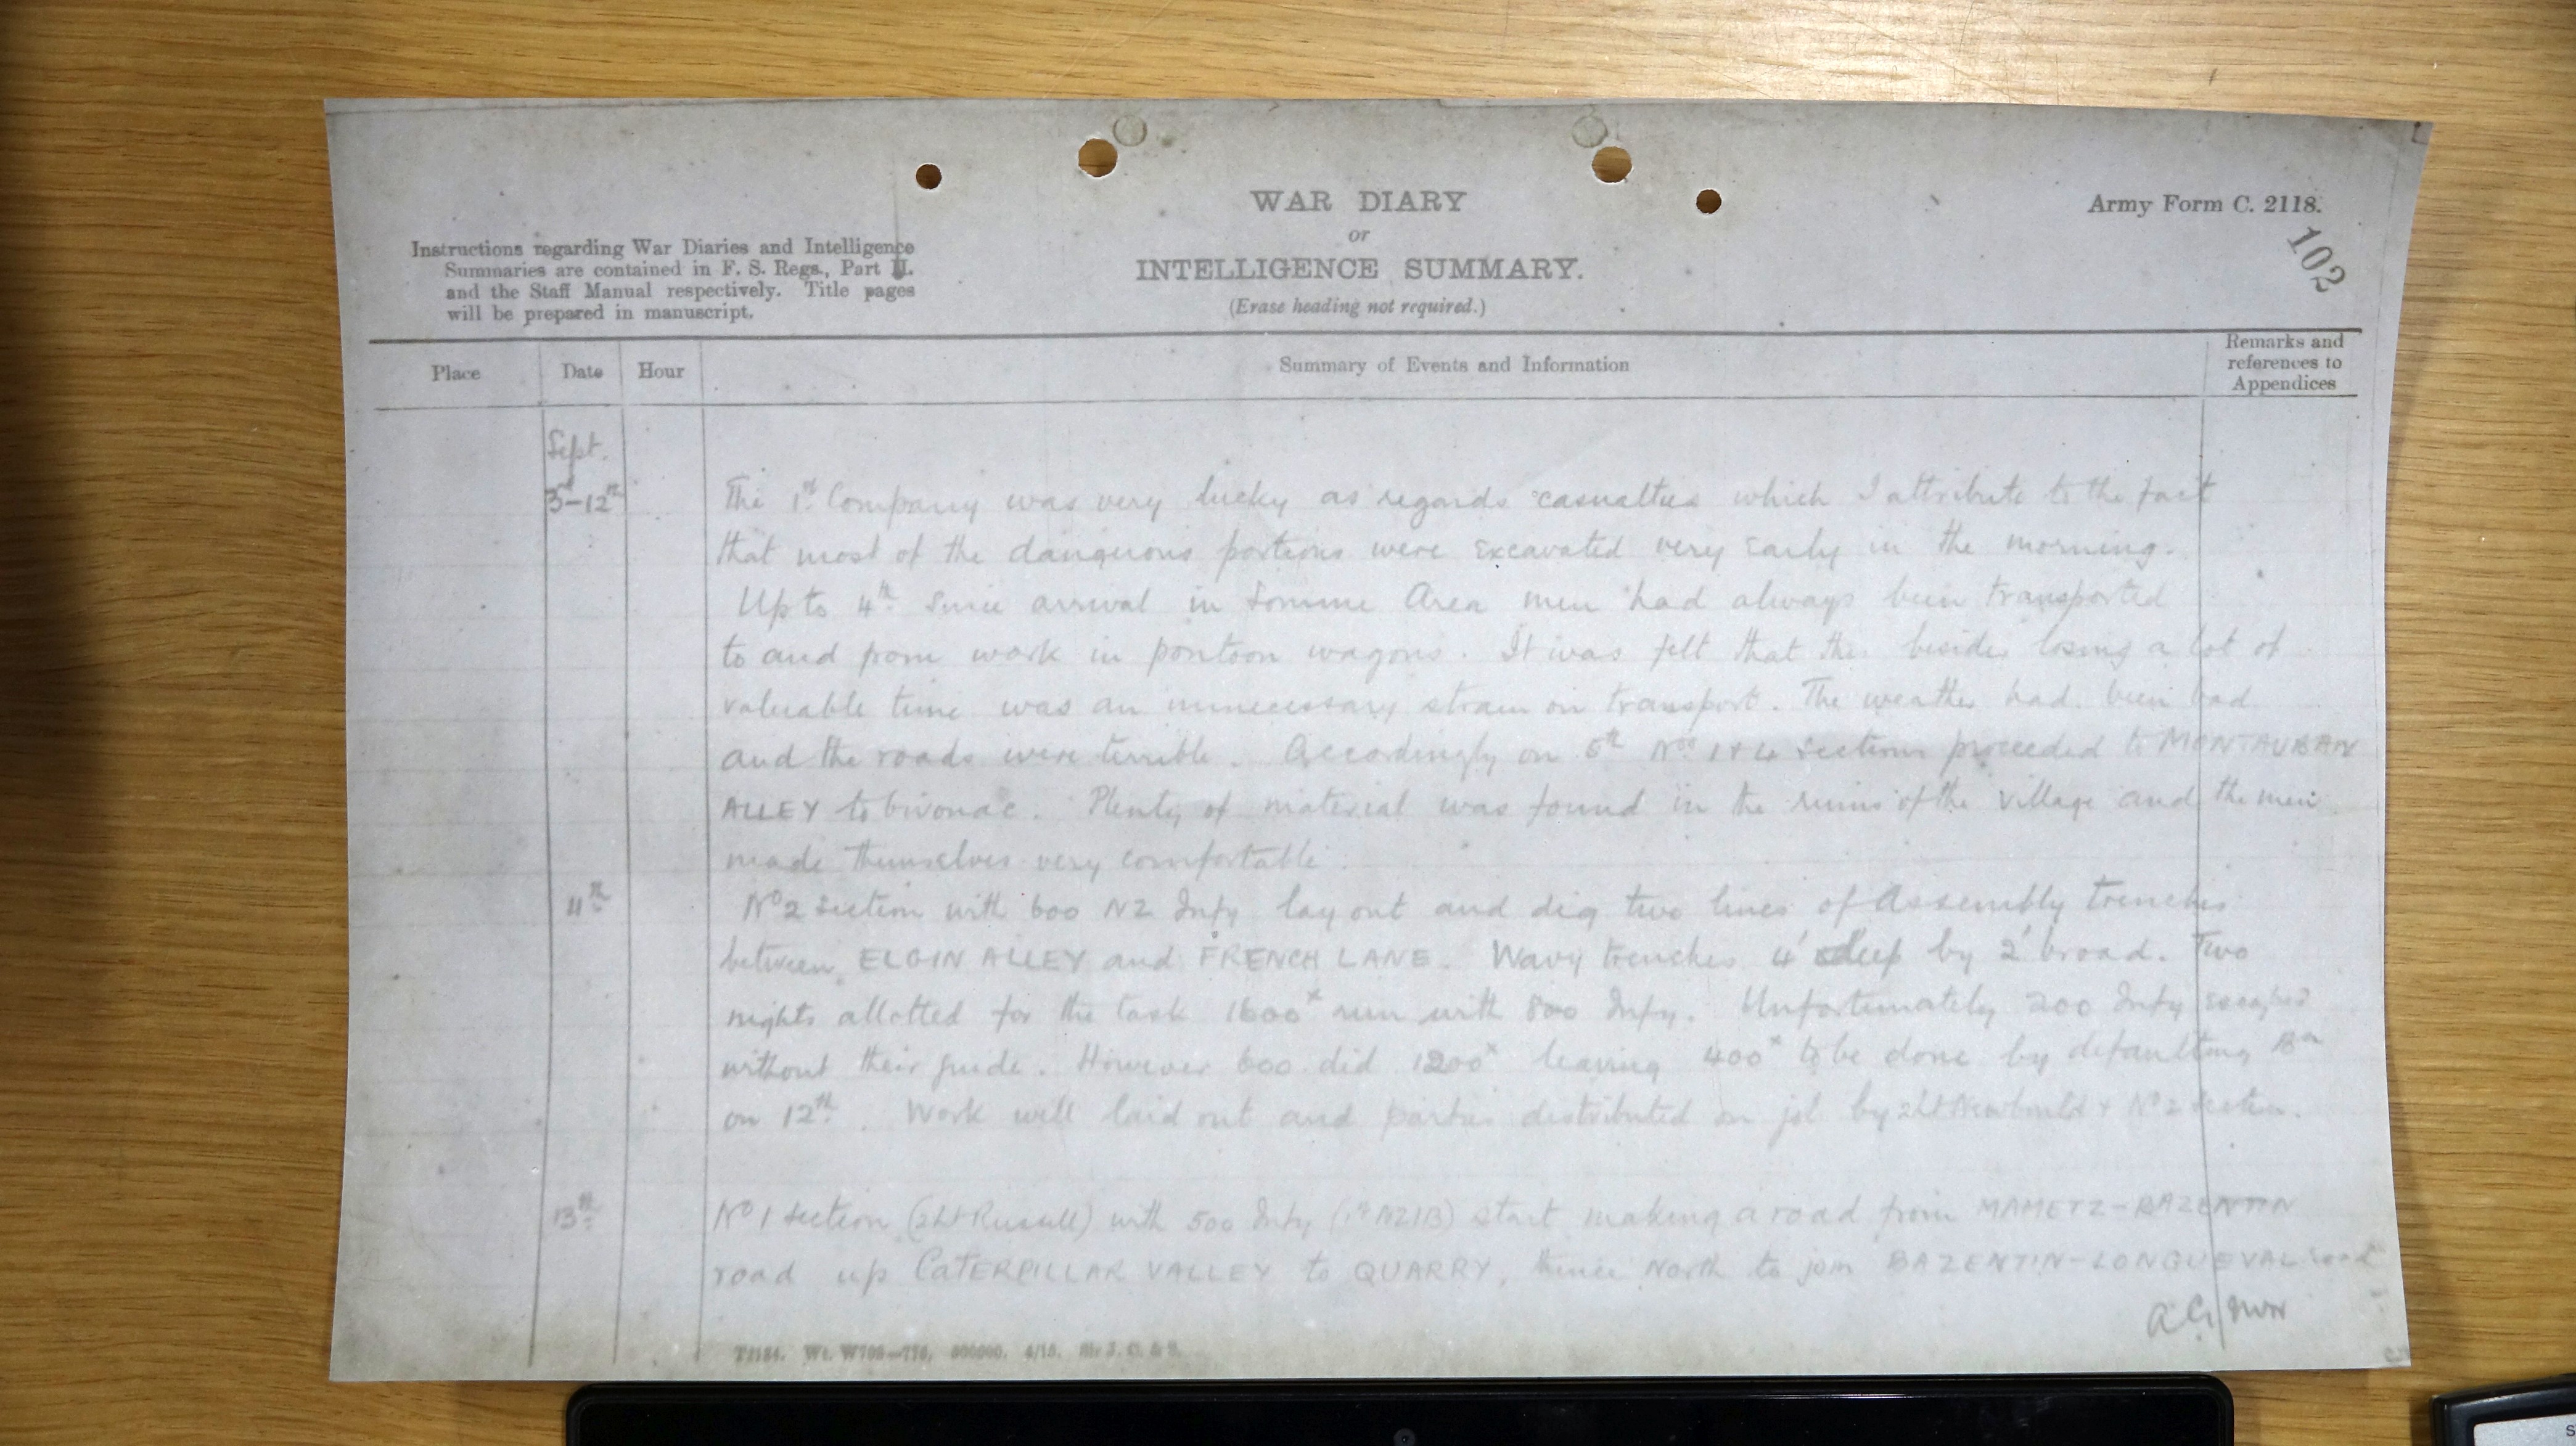 WAR DIARY
or
INTELLIGENCE SUMMARY.
(Erase heading not required.)
Army Form C. 2118.
102
Instructions regarding War Diaries and Intelligence
Summaries are contained in F. S. Regs., Part II.
and the Staff Manual respectively. Title pages
will be prepared in manuscript.
Place Date Hour Summary of Events and Information Remarks and
references to
Appendices
Sept.
3rd-12th The 1st Company was very lucky as regards casualties which I attribute to the fact
that most of the dangerous portions were excavated very early in the morning.
Up to 4th since arrival in Somme Area men had always been transported
to and from work in pontoon wagons. It was felt that this besides losing a lot of
valuable time was an unnecessary strain on transport. The weather had been bad
and the roads were terrible. Accordingly on 5th Nos 1 & 4 sections proceeded to MONTAUBAN
ALLEY to bivouac. Plenty of material was found in the ruins of the village and the men
made themselves very comfortable.
11th No 2 section with 600 NZ Infy lay out and dig two lines of Assembly trenches
between ELGIN ALLEY and FRENCH LANE. Wavy trenches 4' deep by 2' broad. Two
nights allotted for the task 1600x run with 800 Infy. Unfortunately 200 Infy escaped
without their guide. However 600 did 1200x leaving 400x to be done by defaulting Bn
on 12th. Work well laid out and parties distributed on job by 2Lt Newbould & No 2 Section.
13th No 1 Section (2Lt Russell) with 500 Infy (1st NZIB) start making a road from MAMETZ-BAZENTIN
road up CATERPILLAR VALLEY to QUARRY, thence North to join BAZENTIN-LONGUEVAL road